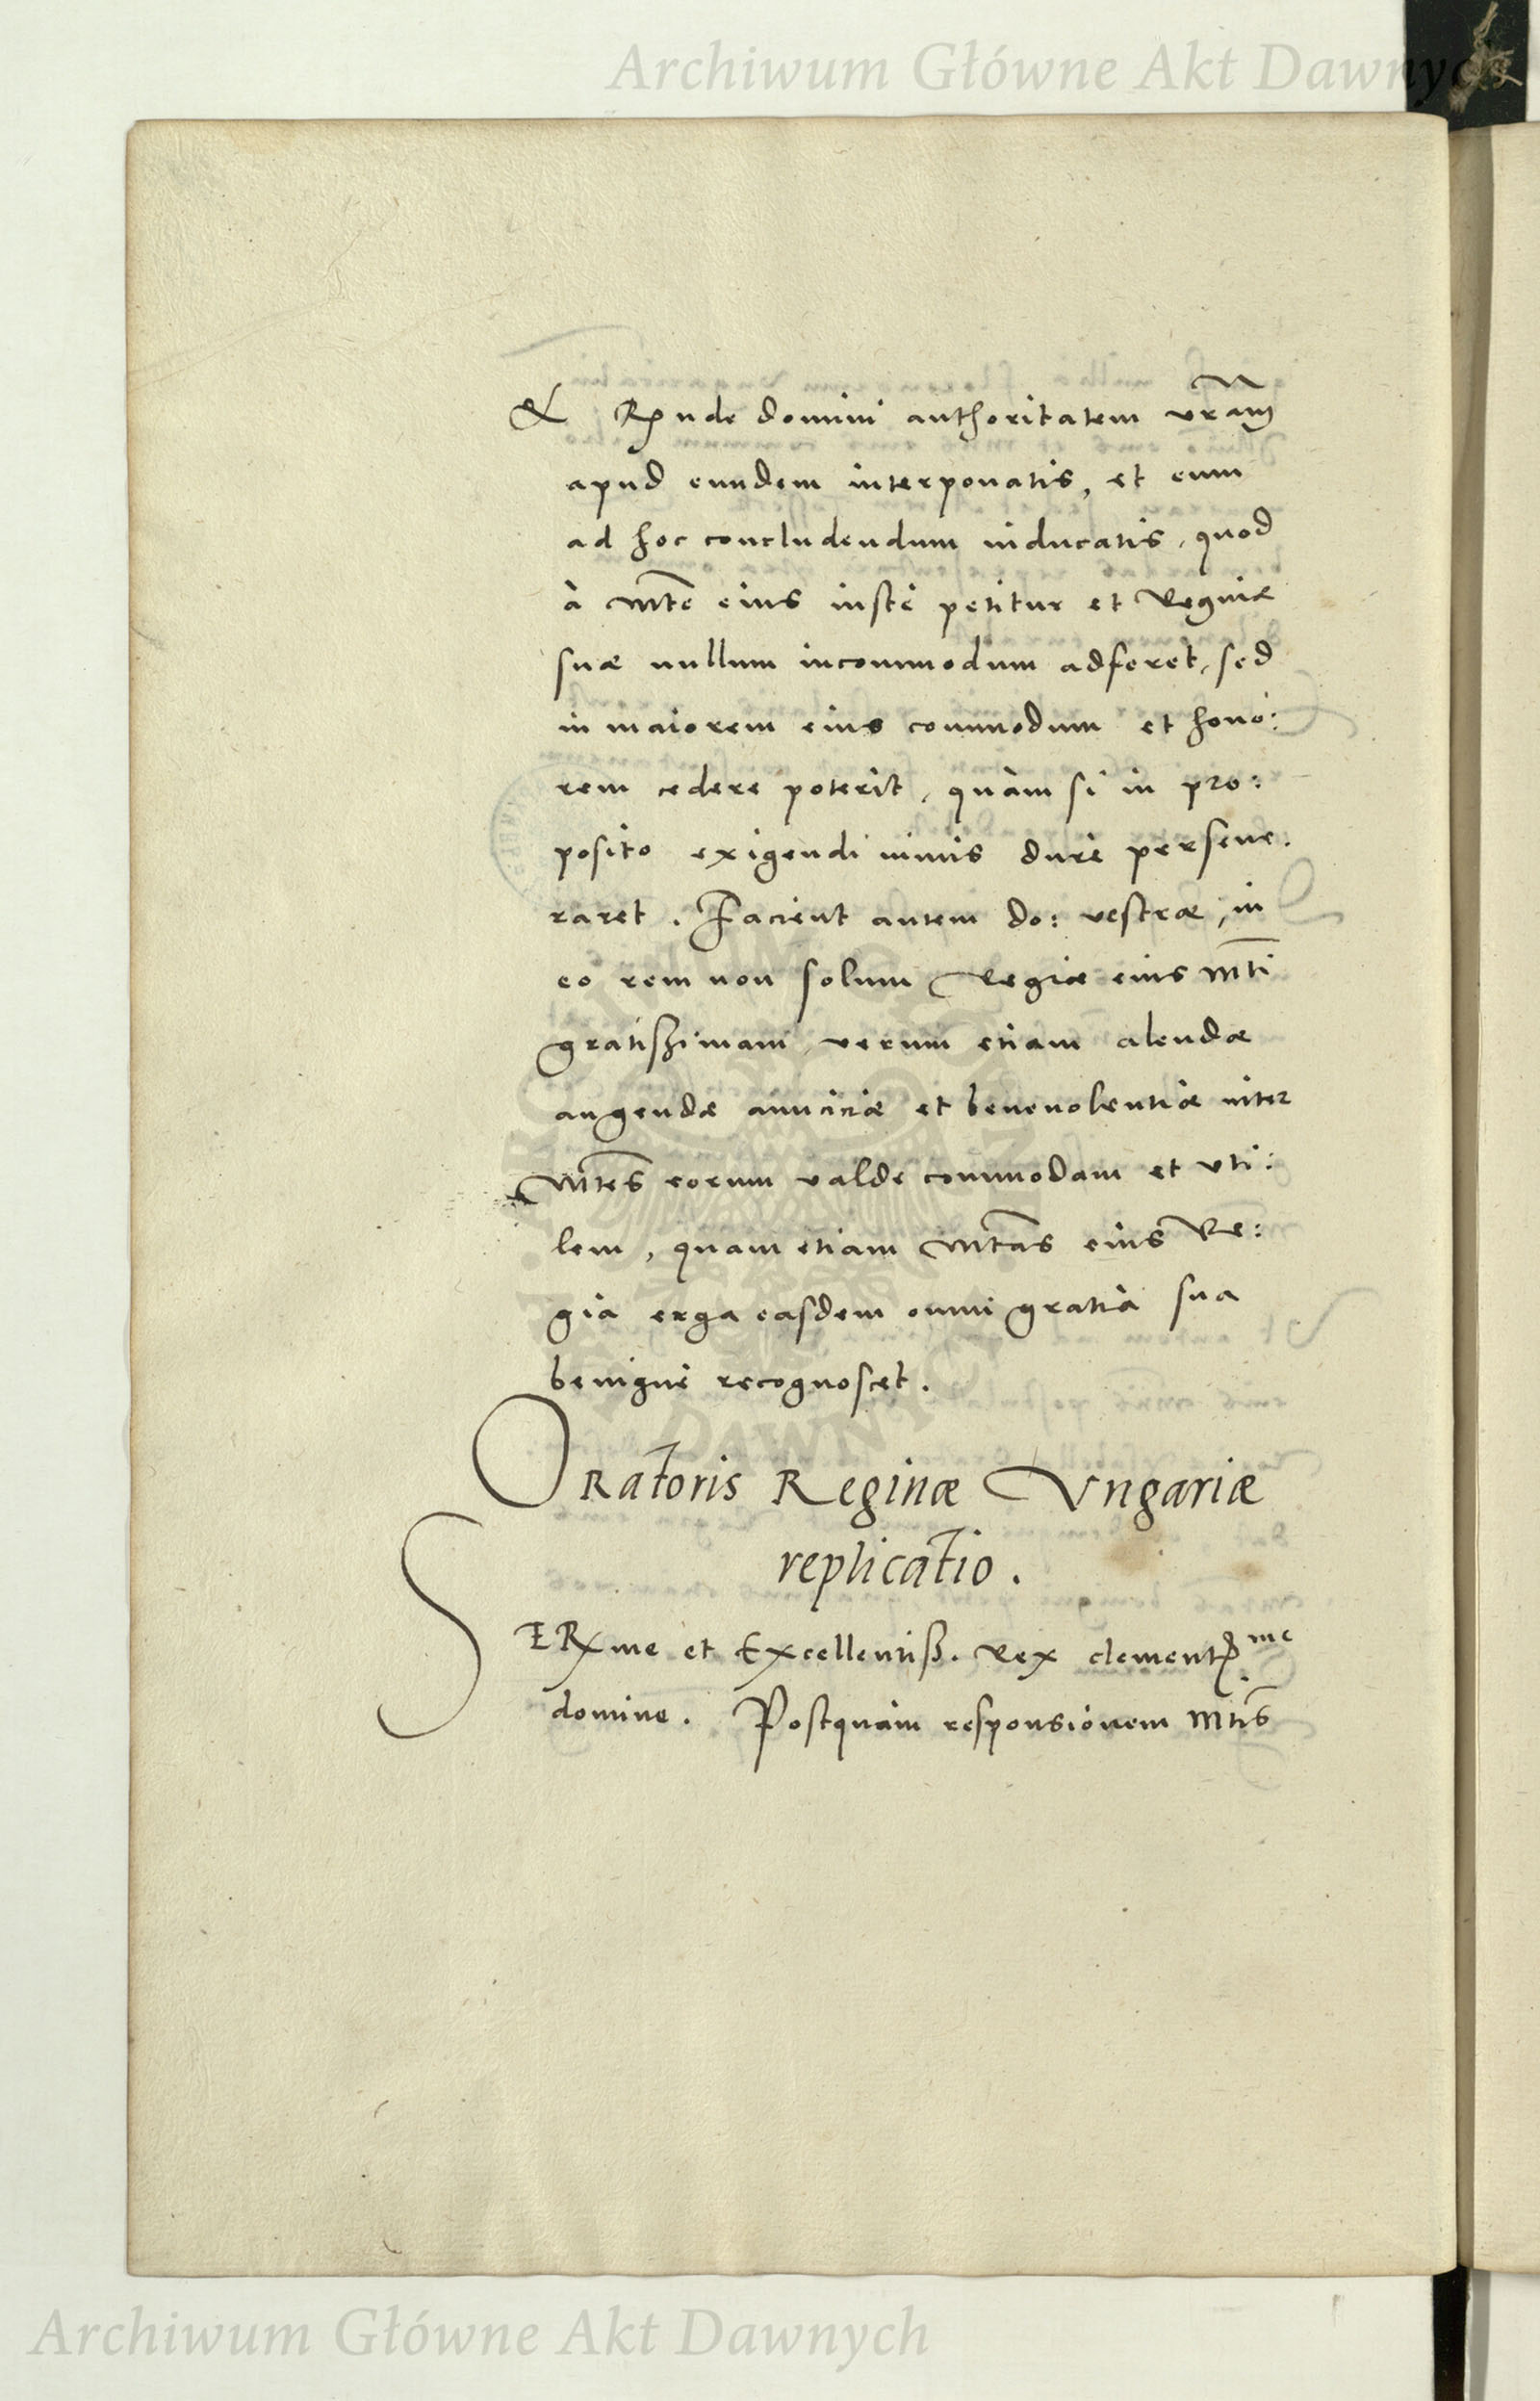 Archiwum Główne Akt Dawnych
& Rx̃nde domini authoritatem vr̃am
apud eundem interponatis, et eum
ad hoc concludendum inducatis, quod
à Mt̃e eius iustè petitur et Regniæ
suæ nullum incommodum adferet, sed
in maiorem eius commodum et hono:
rem cedere poterit, quàm si in pro:
posito exigendi nimis durè perseue:
raret. Facient autem do: vestræ, in
eo rem non solum Regiæ eius Mt̃i
gratißimam, verum etiam alendæ
augendæ amiciciæ et beneuolentiæ inter
Mt̃es eorum valde commodam et vti:
lem, quam etiam Mt̃as eius Re:
gia erga easdem omni gratia sua
benignè recognoscet.
ORatoris Reginæ Vngariæ
replicatio.
SERx̃me et Excellentiß. Rex clementß.me
domine. Postquàm responsionem Mt̃is
Archiwum Główne Akt Dawnych